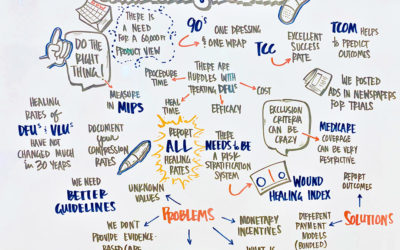 THERE IS
A NEED
FOR A 60,000 ft
PRODUCT VIEW
90's
ONE DRESSING
& ONE WRAP
TCC
EXCELLENT
SUCCESS
RATE
TCOM HELPS
TO PREDICT
OUTCOMES
DO THE
RIGHT
THING!
PROCEDURE
TIME
THERE ARE
HURDLES WITH
TREATING DFU's
COST
EFFICACY
HEAL
TIME
MEASURE
IN
MIPS
WE POSTED
ADS IN NEWSPAPERS
FOR TRIALS
HEALING
RATES OF
DFU's & VLU's
HAVE NOT
CHANGED MUCH
IN 30 YEARS
DOCUMENT
YOUR
COMPRESSION
RATES
REPORT
ALL
HEALING
RATES
THERE
NEEDS TO BE
A RISK
STRATIFICATION
SYSTEM
EXCLUSION
CRITERIA
CAN BE
CRAZY
MEDICARE
COVERAGE
CAN BE VERY
RESTRICTIVE
WOUND
HEALING INDEX
REPORT
OUTCOMES
WE NEED
BETTER
GUIDELINES
UNKNOWN
VALUES
PROBLEMS
MONETARY
INCENTIVES
DIFFERENT
PAYMENT
MODELS
(BUNDLED)
SOLUTIONS
WE DON'T
PROVIDE EVIDENCE-
BASED CARE
WHAT IS